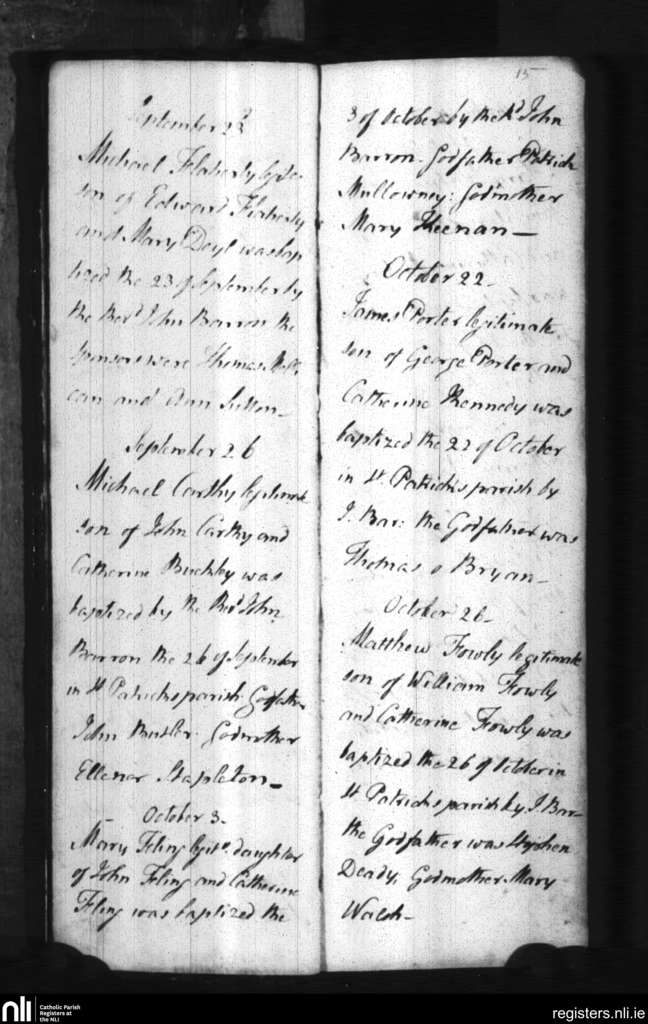 September 23
Michael Flaherty legite.
son of Edward Flaherty
and Mary Doyl was bap
tized the 23 of September by
the Revd John Barron the
sponsors were Thomas
can and Ann Sutton_
September 26
Michael Carthy legitimate
son of John Carthy and
Catherine Buckley was
baptized by the Revd John
Barron the 26 of September
in St Patricks parish Godfather
John Butler. Godmother
Ellenor Stapleton_
October 3.
Mary Fling legite. daughter
of John Fling and Catherine
Fling was baptized the
15
3 of October by the Rd John
Barron Godfather Patrick
Mullowney: Godmother
Mary Keenan_
October 22_
James Porter legitimate
son of George Porter and
Catherine Kennedy was
baptized the 22 of October
in St. Patrick's parish by
J. Bar: the Godfather was
Thomas o Bryan_
October 26_
Matthew Fowly legitimate
son of William Fowly
and Catherine Fowly was
baptized the 26 of October in
St Patricks parish by J. Bar_
the Godfather was Stephen
Deady, Godmother Mary
Walsh_
nli
Catholic Parish
Registers at
the NLI
registers.nli.ie